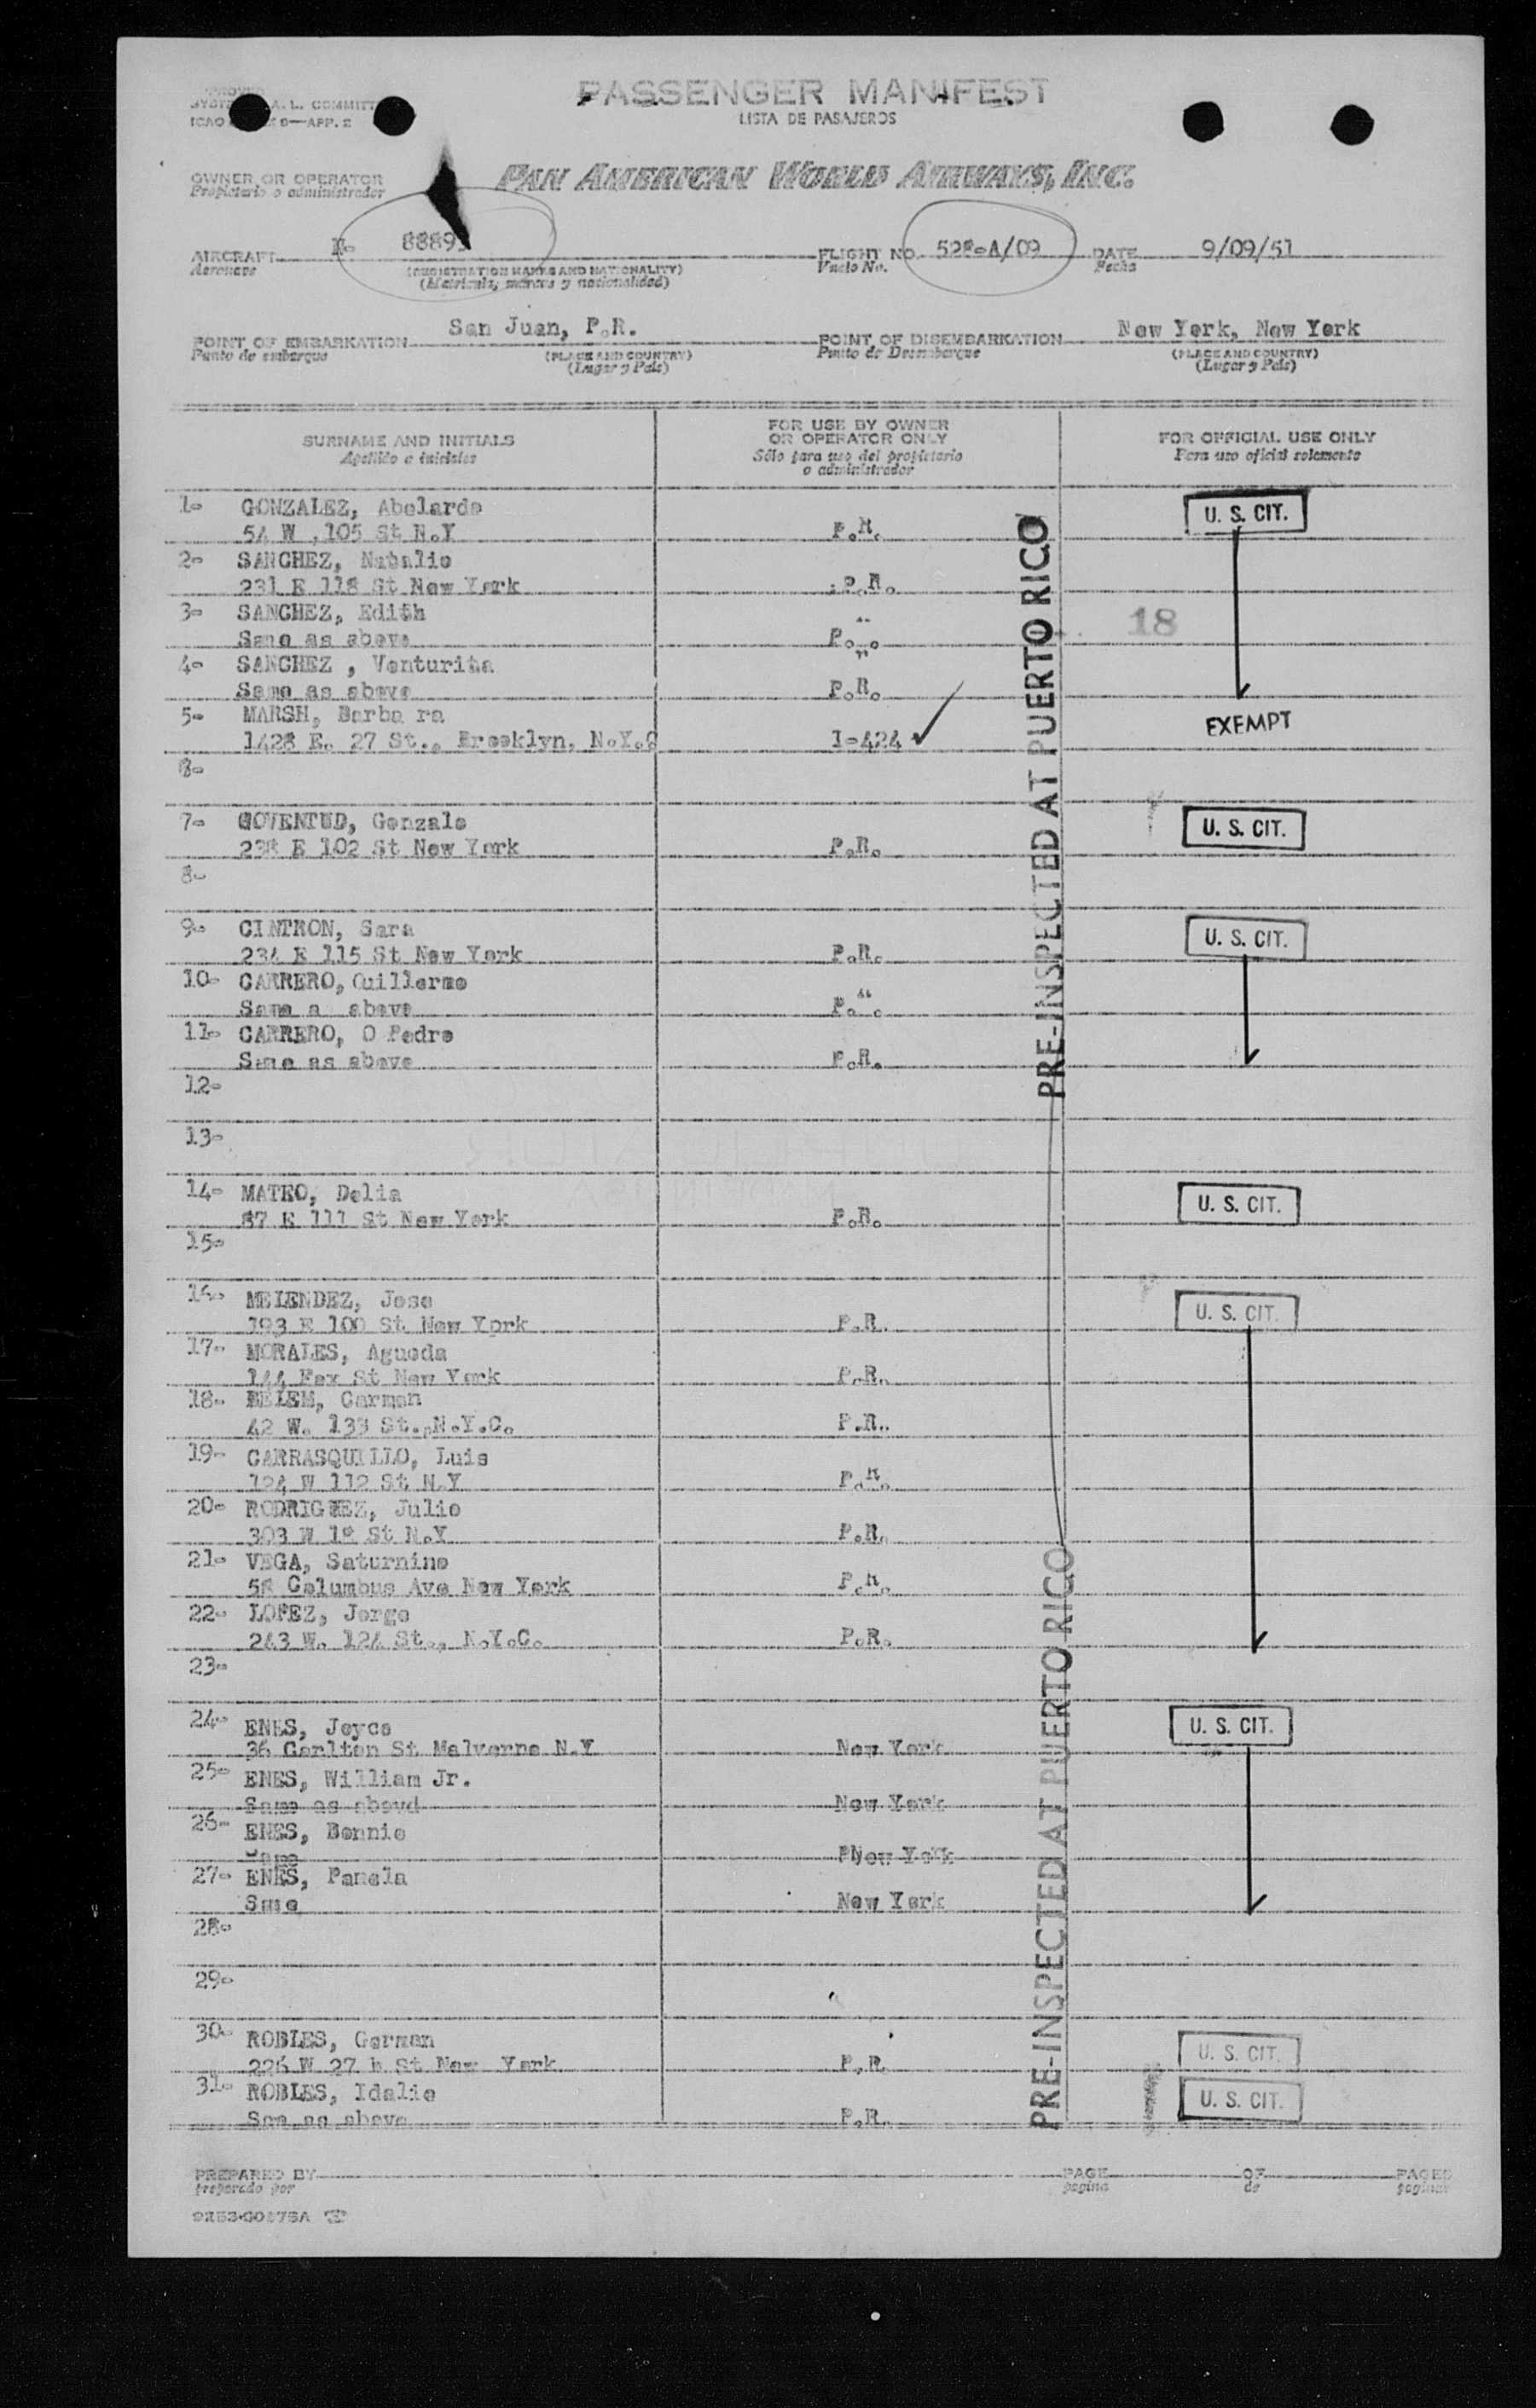 PASSENGER MANIFEST
LISTA DE PASAJEROS
A. L. COMMITT
ICAO 9—APP. 2
OWNER OR OPERATOR
Propietario o administrador
PAN AMERICAN WORLD AIRWAYS, INC.
AIRCRAFT N- 8889
Aeronave
(REGISTRATION MARKS AND NATIONALITY)
(Matricula, marcas y nacionalidad)
FLIGHT NO. 528-A/09
Vuelo No.
DATE 9/09/51
Fecha
POINT OF EMBARKATION San Juan, P.R.
Punto de embarque
(PLACE AND COUNTRY)
(Lugar y País)
POINT OF DISEMBARKATION New York, New York
Punto de Desembarque
(PLACE AND COUNTRY)
(Lugar y País)
SURNAME AND INITIALS
Apellido e iniciales
FOR USE BY OWNER
OR OPERATOR ONLY
Sólo para uso del propietario
o administrador
FOR OFFICIAL USE ONLY
Para uso oficial solamente
1- GONZALEZ, Abelardo U. S. CIT.
54 W ,105 St N.Y P.R.
2- SANCHEZ, Natalio
231 E 118 St New York P.R.
3- SANCHEZ, Edith 18
Same as above P. .
4- SANCHEZ , Venturita
Same as above P.R.
5- MARSH, Barba ra EXEMPT
1428 E. 27 St., Brooklyn, N.Y.C 1-424 ✓
7- GOVENTUD, Gonzalo U. S. CIT.
238 E 102 St New York P.R.
8-
9- CINTRON, Sara U. S. CIT.
234 E 115 St New York P.R.
10- CARRERO, Guillermo
Same a above P.
11- CARRERO, O Pedro
Same as above P.R.
12-
13-
14- MATEO, Delia U. S. CIT.
87 E 111 St New York P.R.
15-
16- MELENDEZ, Jose U. S. CIT.
193 E 100 St New York P.R.
17- MORALES, Agueda
144 Fox St New York P.R.
18- BELEM, Carmen
42 W. 133 St., N.Y.C. P.R.
19- CARRASQUILLO, Luis
124 W 112 St N.Y P.R.
20- RODRIGUEZ, Julio
303 W St N.Y P.R.
21- VEGA, Saturnino
58 Columbus Ave New York P.R.
22- LOPEZ, Jorge
243 W. 124 St., N.Y.C. P.R.
23-
24- ENES, Joyce U. S. CIT.
36 Carlton St Malverne N.Y New York
25- ENES, William Jr.
Same as aboyd New York
26- ENES, Bonnie
Same New York
27- ENES, Pamela
Same New York
28-
29-
30- ROBLES, German U. S. CIT.
226 W 27 h St New York P.R.
31- ROBLES, Idalie U. S. CIT.
Same as above P.R.
PRE-INSPECTED AT PUERTO RICO
PRE-INSPECTED AT PUERTO RICO
PREPARED BY
preparado por
PAGE OF PAGES
pagina de paginas